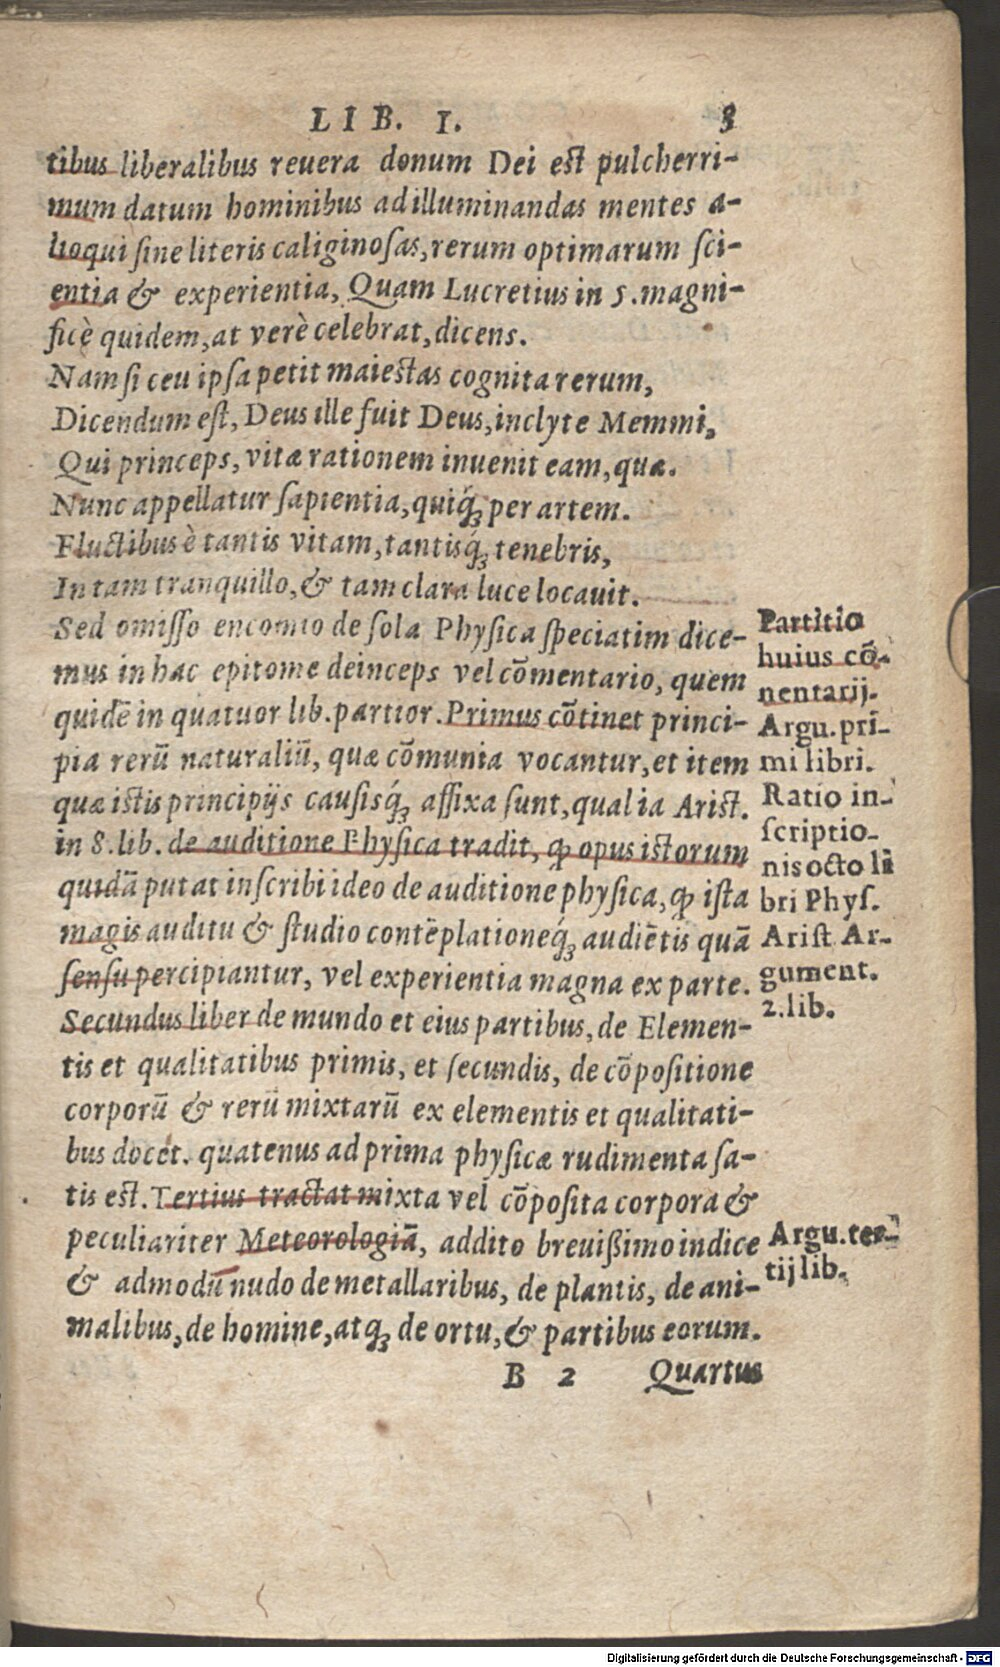 LIB. I. 3
tibus liberalibus reuera donum Dei est pulcherri-
mum datum hominibus ad illuminandas mentes a-
lioqui sine literis caliginosas, rerum optimarum sci-
entia & experientia, Quam Lucretius in 5. magni-
ficè quidem, at verè celebrat, dicens.
Nam si ceu ipsa petit maiestas cognita rerum,
Dicendum est, Deus ille fuit Deus, inclyte Memmi,
Qui princeps, vitæ rationem inuenit eam, quæ.
Nunc appellatur sapientia, quiq́; per artem.
Fluctibus è tantis vitam, tantisq́; tenebris,
In tam tranquillo, & tam clara luce locauit.
Sed omisso encomio de sola Physica speciatim dice-
mus in hac epitome deinceps vel cōmentario, quem
quidē in quatuor lib. partior. Primus cōtinet princi-
pia rerū naturaliū, quæ cōmunia vocantur, et item
quæ istis principijs causisq́; affixa sunt, qualia Arist.
in 8. lib. de auditione Physica tradit, ꝙ opus istorum
quidā putat inscribi ideo de auditione physica, ꝙ ista
magis auditu & studio contēplationeq́; audiētis quā
sensu percipiantur, vel experientia magna ex parte.
Secundus liber de mundo et eius partibus, de Elemen-
tis et qualitatibus primis, et secundis, de cōpositione
corporū & rerū mixtarū ex elementis et qualitati-
bus docet. quatenus ad prima physicæ rudimenta sa-
tis est. Tertius tractat mixta vel cōposita corpora &
peculiariter Meteorologiā, addito breuißimo indice
& admodū nudo de metallaribus, de plantis, de ani-
malibus, de homine, atq; de ortu, & partibus eorum.
B 2 Quartus
Partitio
huius cō-
nentarij.
Argu. pri-
mi libri.
Ratio in-
scriptio-
nis octo li
bri Phys.
Arist Ar-
gument.
2. lib.
Argu. ter-
tij lib.
Digitalisierung gefördert durch die Deutsche Forschungsgemeinschaft - DFG